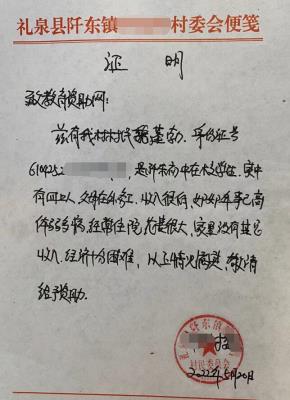 礼泉县阡东镇 村委会便笺
证 明
致教育资助网:
兹有我村村民 身份证号
610425 是 初中在校学生。家中
有四口人,父亲在外务工,收入很低,奶奶年事已高
体弱多病,经常住院,花费很大,家里没有其他
收入,经济十分困难,以上情况属实,敬请
给予资助。
村民委员会
2022年5月20日